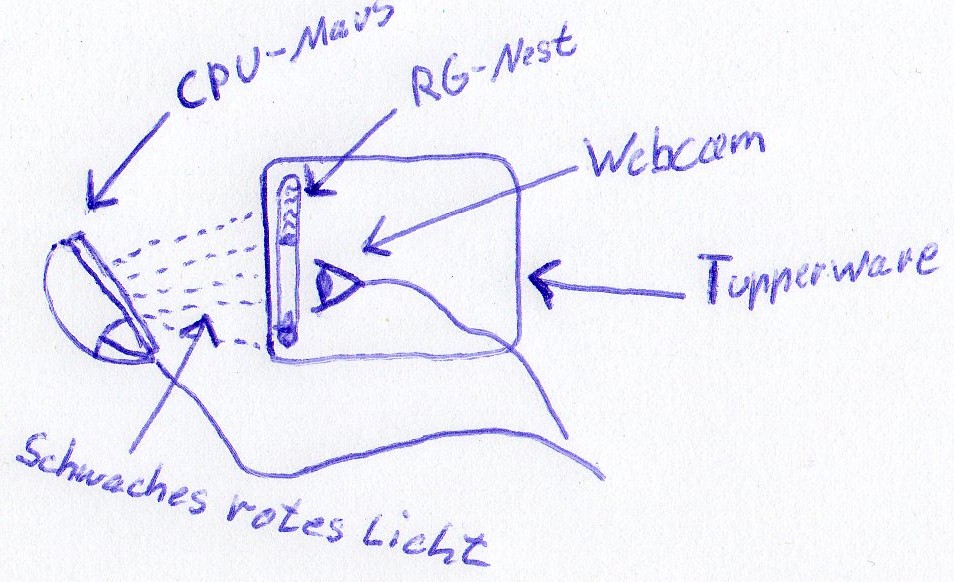 CPU-Maus
RG-Nest
Webcam
Tupperware
Schwaches rotes Licht